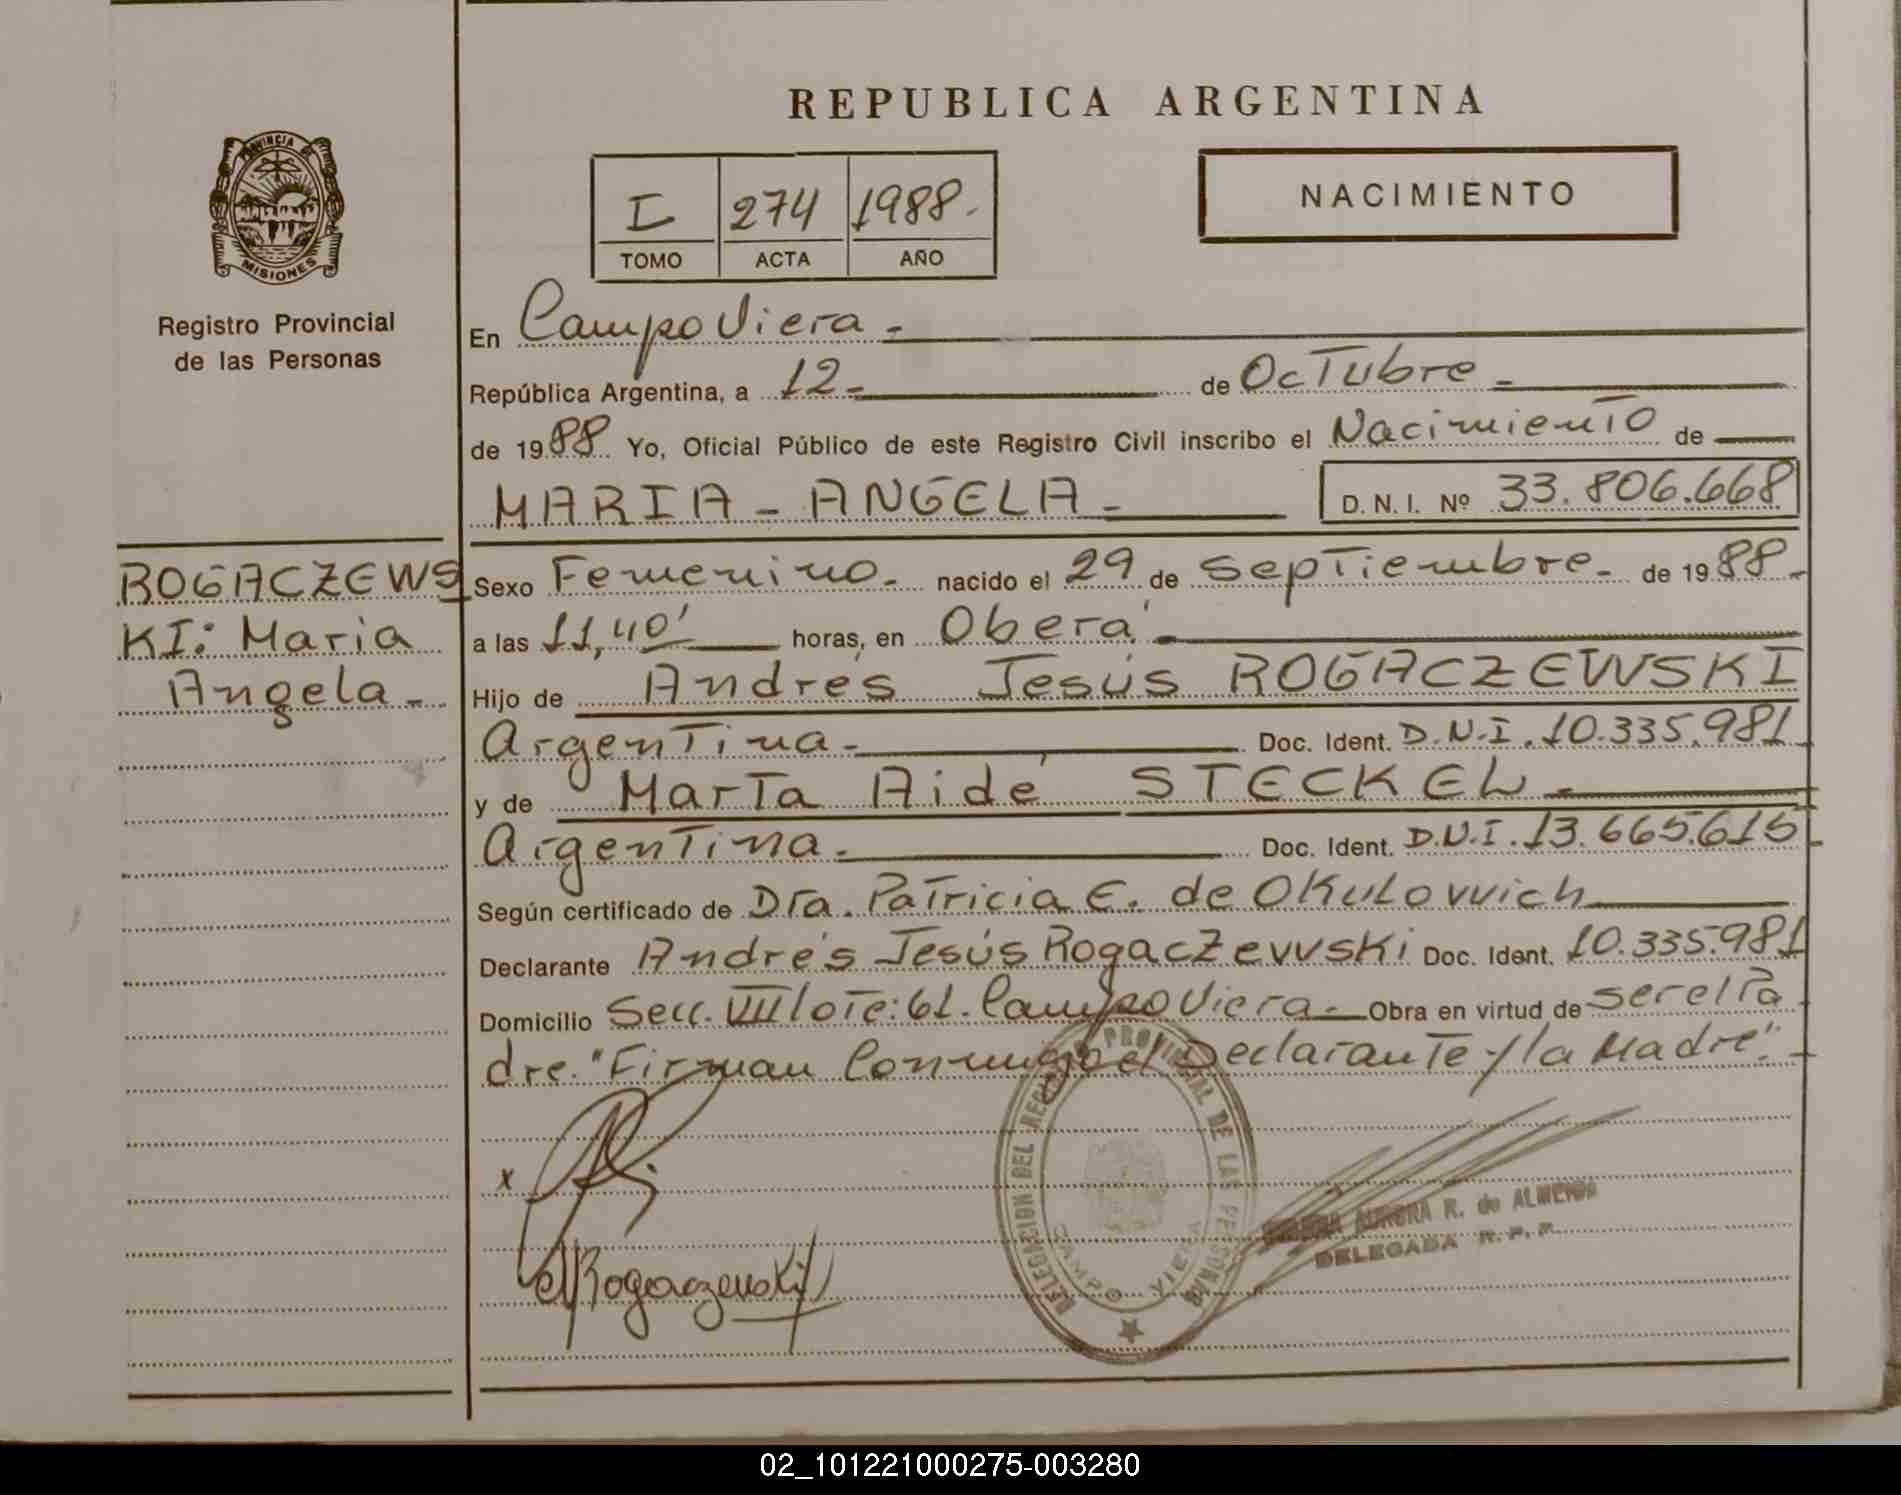 REPUBLICA ARGENTINA
PROVINCIA DE
MISIONES
Registro Provincial
de las Personas
I 274 1988.
TOMO ACTA AÑO
NACIMIENTO
En Campo Viera -
República Argentina, a 12- de Octubre -
de 1988 Yo, Oficial Público de este Registro Civil inscribo el Nacimiento de
MARIA - ANGELA - D. N. I. Nº 33.806.668
ROGACZEWS
KI: Maria
Angela -
Sexo Femenino - nacido el 29 de Septiembre - de 1988.-
a las 11,40' horas, en Oberá -
Hijo de Andrés Jesús ROGACZEWSKI
Argentina - Doc. Ident. D.N.I. 10.335.981
y de Marta Aidé STECKEL -
Argentina - Doc. Ident. D.N.I. 13.665.615
Según certificado de Dra. Patricia E. de Okulovvich
Declarante Andrés Jesús Rogaczevvski Doc. Ident. 10.335.981
Domicilio Secc. VIII lote: 61. Campo Viera - Obra en virtud de ser el Pa
dre. "Firman Conmigo el Declarante y la Madre".-
x
Rogaczewski
DELEGACION DEL REGISTRO PROVINCIAL DE LAS PERSONAS
CAMPO VIERA
AURORA R. de ALMEIDA
DELEGADA R. P. P.
02_101221000275-003280